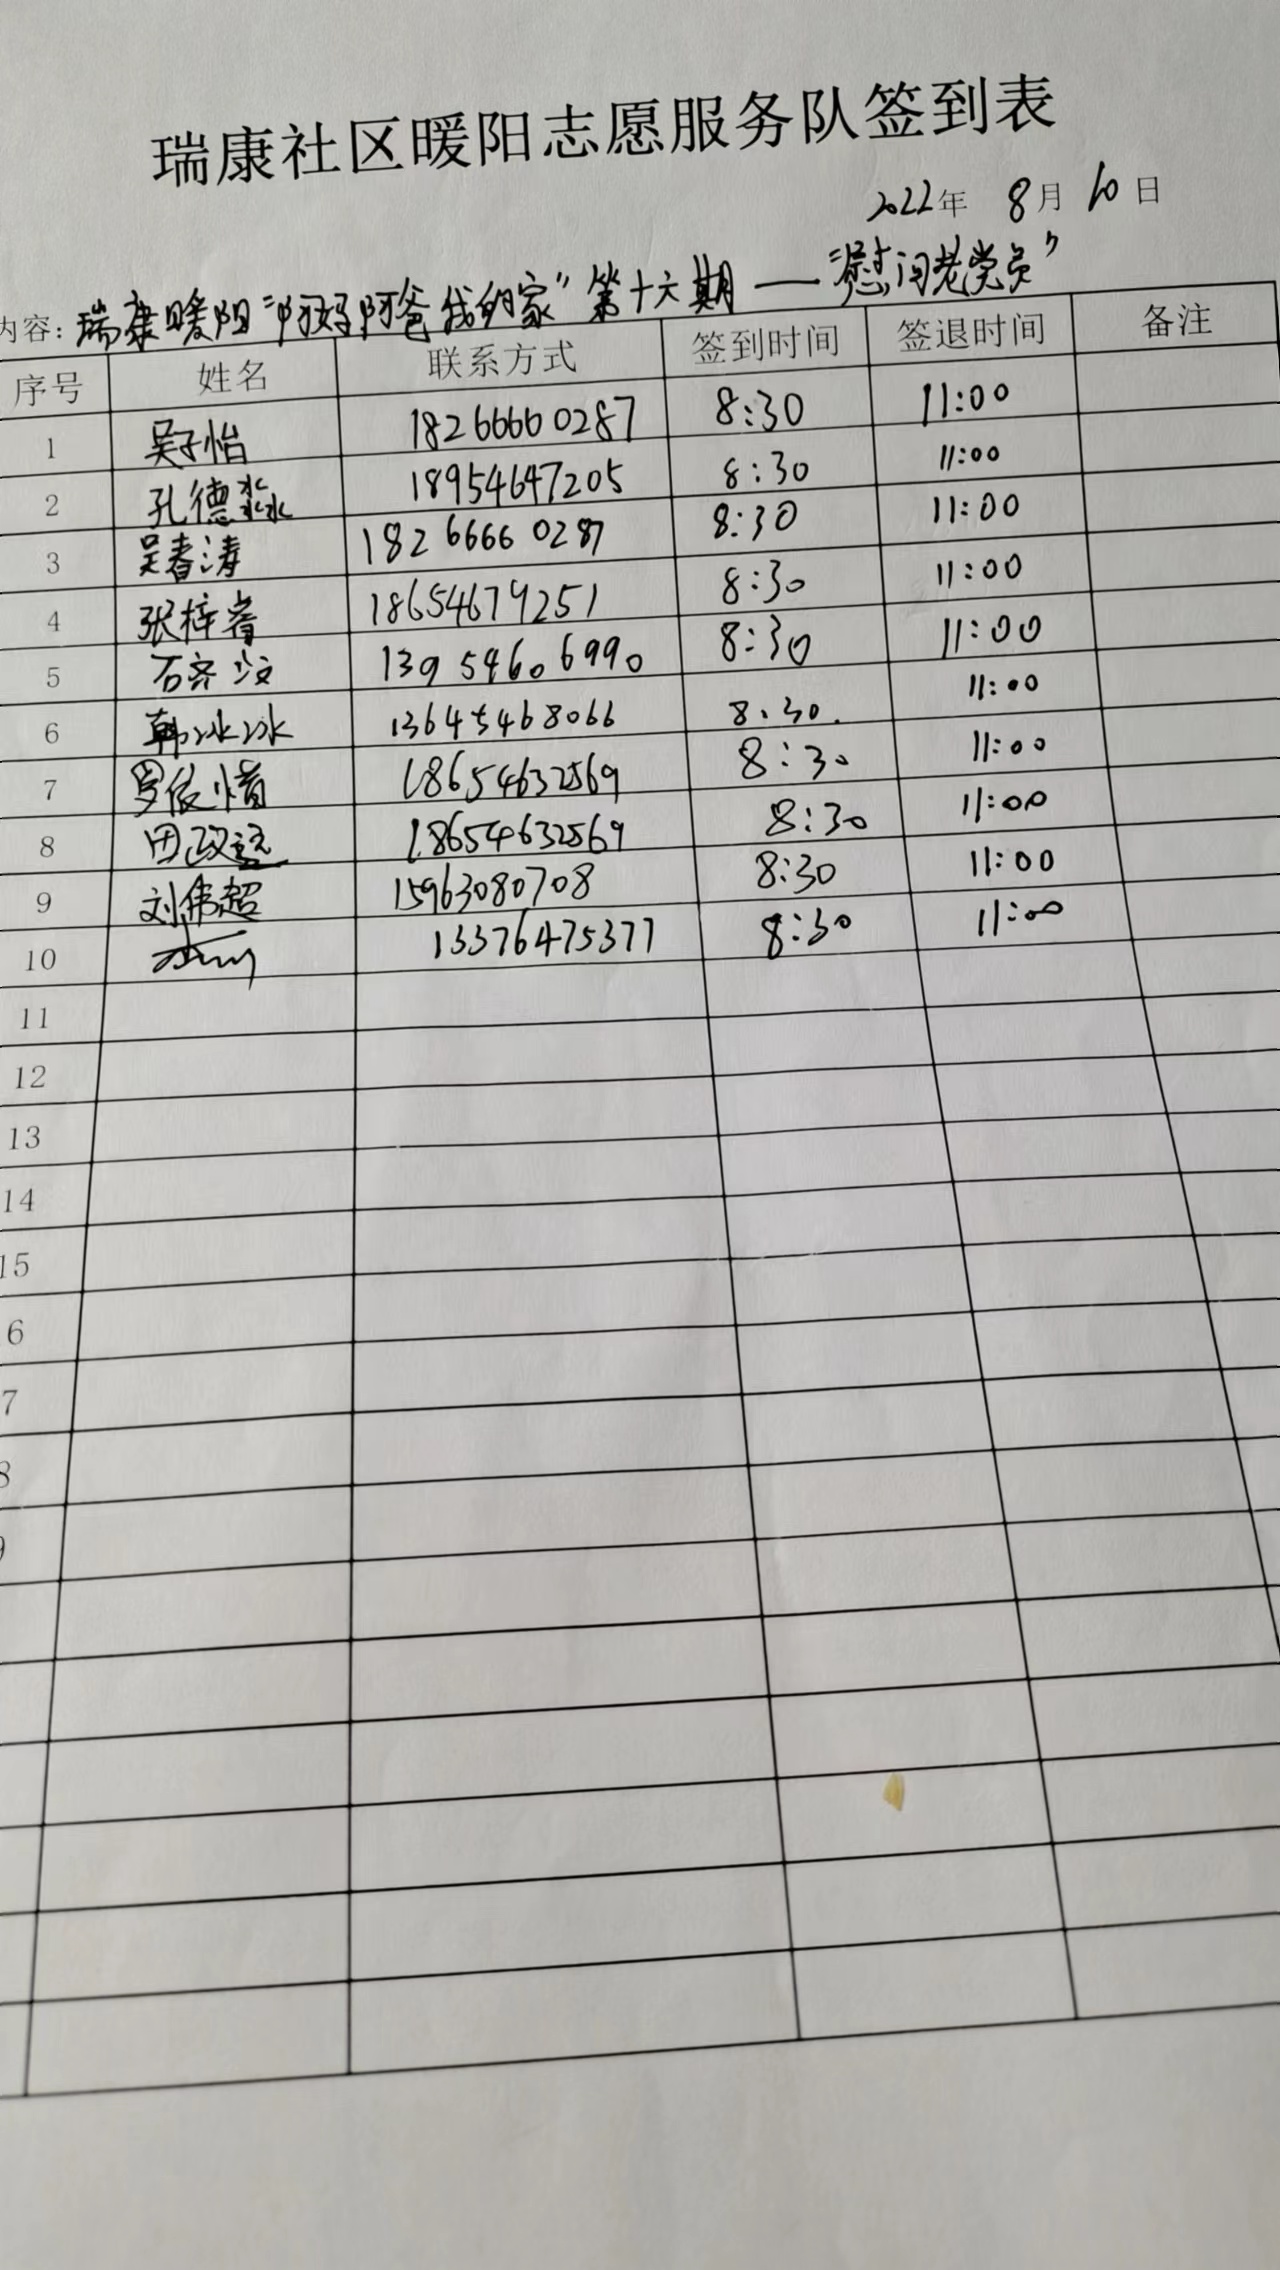 瑞康社区暖阳志愿服务队签到表
2022年 8月10日
内容：瑞康暖阳“阿妈阿爸我的家”第十六期——“慰问老党员”
序号 姓名 联系方式 签到时间 签退时间 备注
1 吴子怡 18266660287 8:30 11:00
2 孔德淼 18954647205 8:30 11:00
3 吴春涛 18266660287 8:30 11:00
4 张梓睿 18654679251 8:30 11:00
5 石齐 13954606990 8:30 11:00
6 韩冰冰 13645468066 8:30. 11:00
7 罗俊惜 18654632569 8:30 11:00
8 田政 18654632569 8:30 11:00
9 刘伟超 15963080708 8:30 11:00
10 13376475377 8:30 11:00
11
12
13
14
15
6
7
8
9